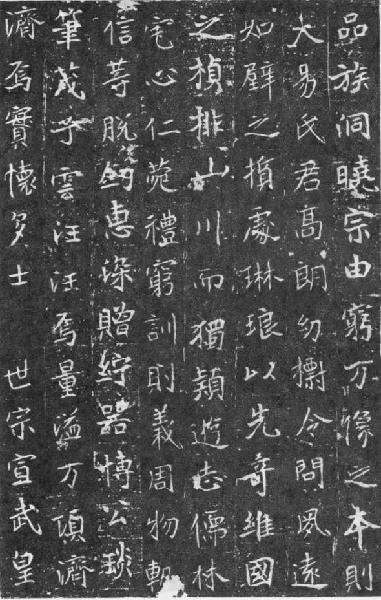 品族洞曉宗由窮万像之本則
大易氏君高朗幼摽令問夙遠
如璧之處琳琅以先奇維國
之楨排山川而獨穎遊志儒林
宅心仁菀禮窮訓則義周物軌
信等脫劒惠深贈紵器博公琰
筆茂子雲汪汪焉量溢万頃濟
濟焉實懷多士 世宗宣武皇